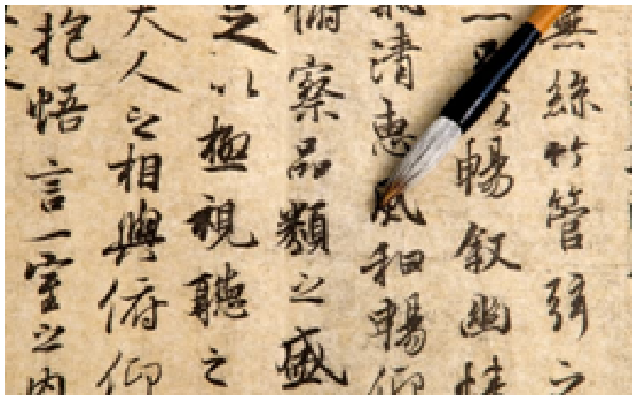 絲竹管弦之
暢叙幽情
清惠風和暢仰
俯察品類之盛
以極視聽之
夫人之相與俯仰
抱悟言一室之內